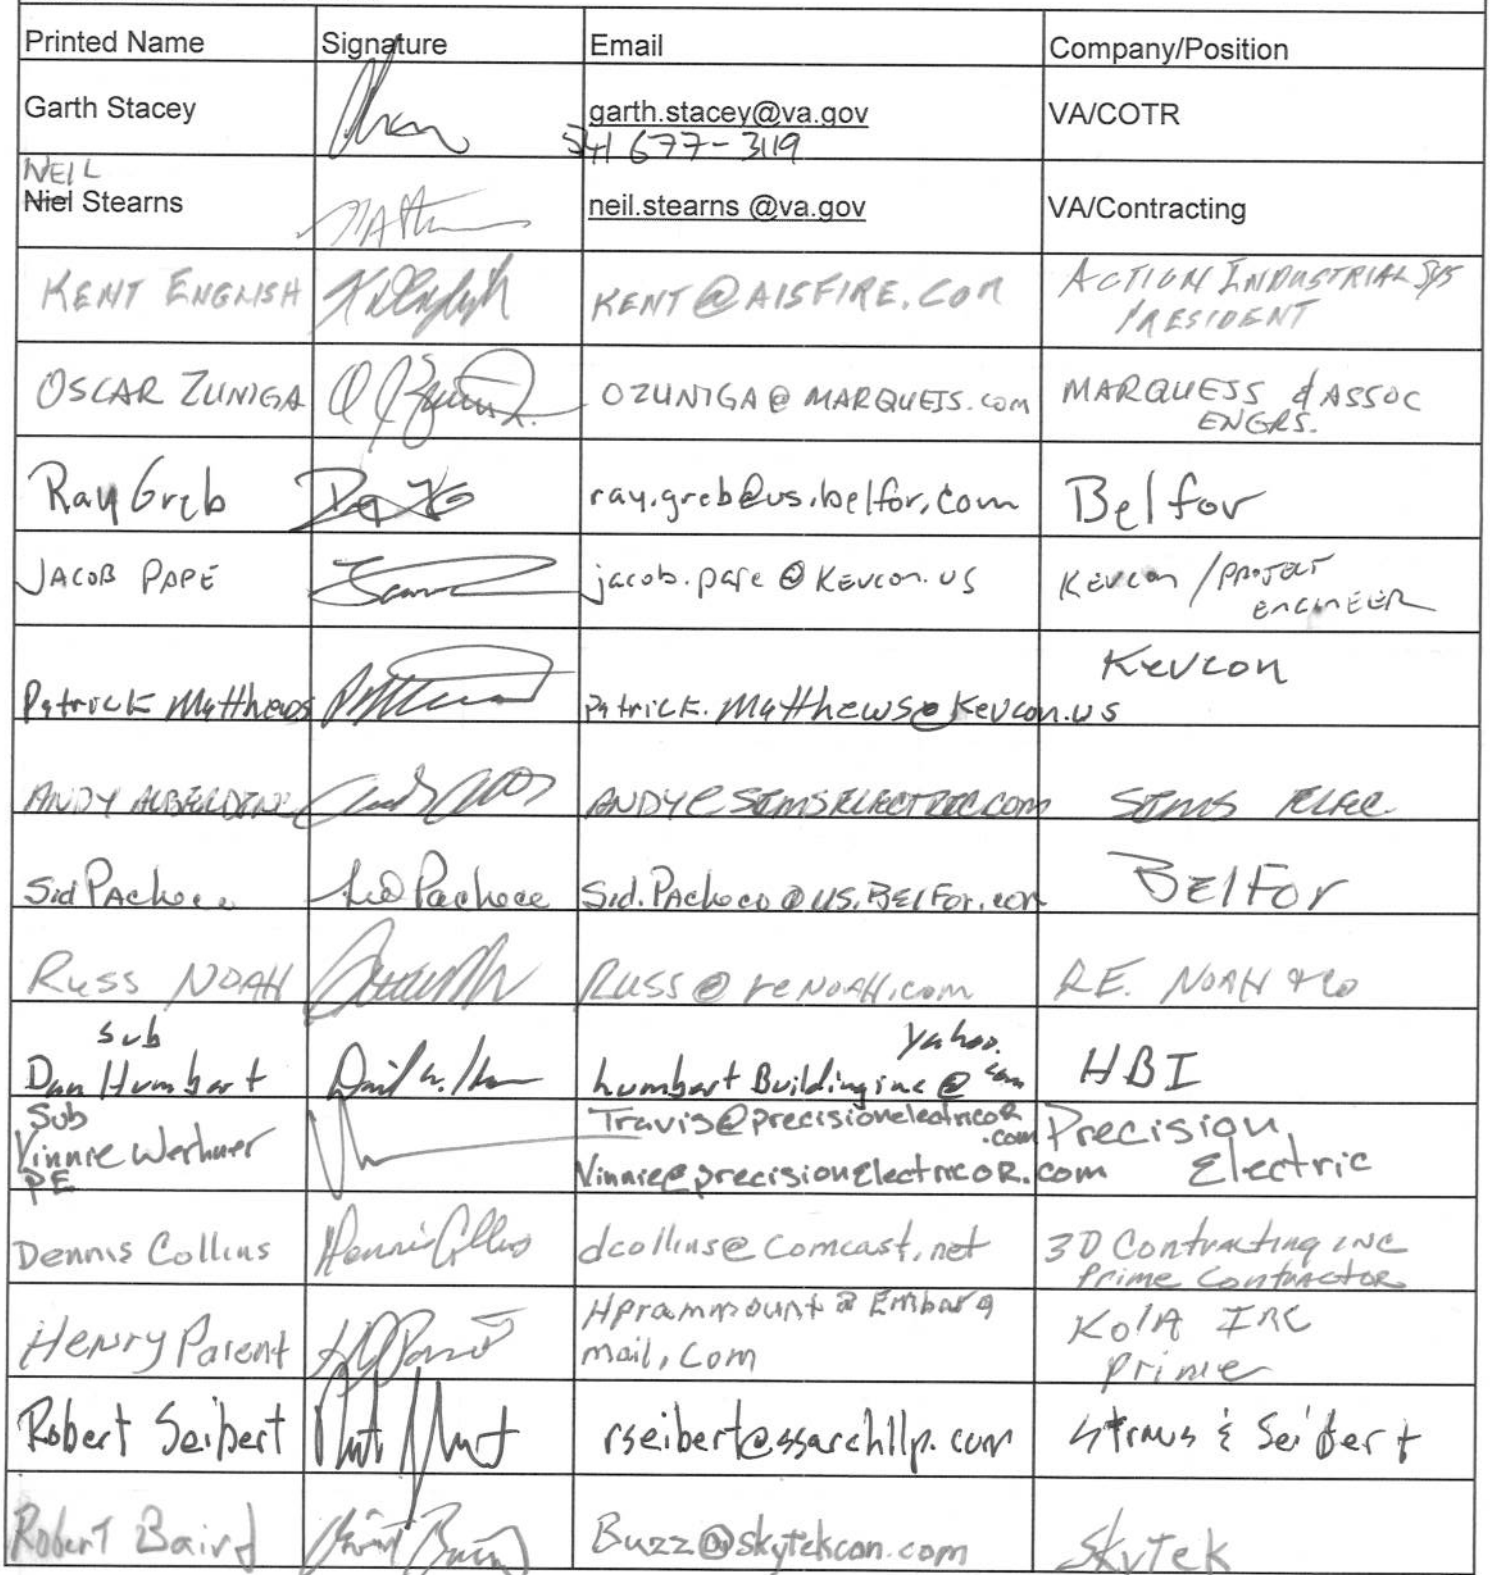 Printed Name Signature Email Company/Position
Garth Stacey garth.stacey@va.gov VA/COTR
541 677-3119
NEIL
Niel Stearns neil.stearns @va.gov VA/Contracting
KENT ENGLISH KENT@AISFIRE.COM ACTION INDUSTRIAL SYS
PRESIDENT
OSCAR ZUNIGA OZUNIGA@MARQUESS.com MARQUESS & ASSOC
ENGRS.
Ray Greb ray.greb@us.belfor.com Belfor
JACOB PAPE jacob.pape@Kevcon.us Kevcon / PROJECT
ENGINEER
Kevcon
Patrick Matthews Patrick.Matthews@Kevcon.us
ANDY ANDY@SIMSELECTRIC.COM SIMS ELEC.
Sid Pacheco Sid Pacheco Sid.Pacheco@US.BELFor.com BELFor
Russ NOAH Russ@reNOAH.com R.E. NOAH & Co
sub yahoo.
Dan Humbert humbert Buildinginc@ com HBI
Sub Travis@precisionelectricoR
.com Precision
Vinnie Werhner Electric
PE Vinnie@precisionelectricoR.com
Dennis Collins Dennis Collins dcollins@comcast.net 3D Contracting INC
Prime Contractor
Henry Parent Hprammount@Embarq KolA INC
mail.com prime
Robert Seibert rseibert@ssarchllp.com Straus & Seibert
Robert Baird Buzz@skytekcon.com SkyTek